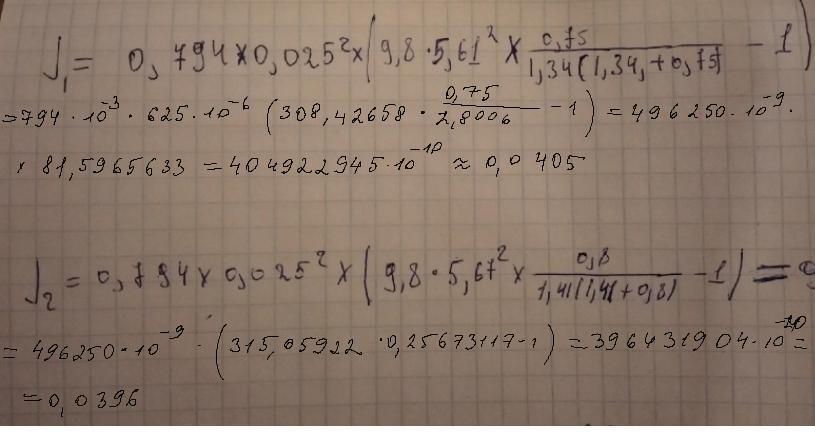 J₁ = 0,794×0,025²×(9,8·5,61²×0,75/1,34(1,34,+0,75) − 1)
=794·10⁻³·625·10⁻⁶(308,42658·0,75/2,8006 −1) = 496250·10⁻⁹.
× 81,5965633 = 404922945·10⁻¹⁰ ≈ 0,0405
J₂ = 0,794×0,025²×(9,8·5,67²×0,8/1,41(1,41+0,8) −1) = 0
= 496250·10⁻⁹·(315,05922·0,25673117-1) = 396431904·10⁻¹⁰ =
= 0,0396